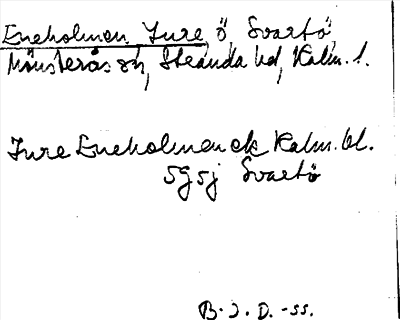 Eneholmen, Jure, ö, Svartö,
Mönsterås sn, Stranda hd, Kalm. l.
Jure Eneholmen ek Kalm. bl.
5g5j Svartö
B. J. D. -55.